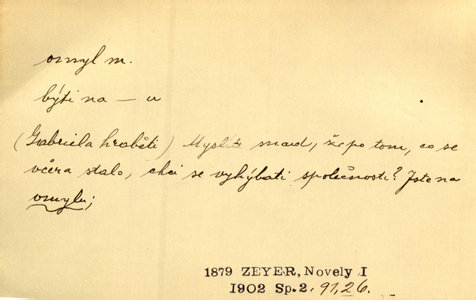 omyl m.
býti na – u
(Gabriela hraběti) Myslíte snad, že po tom, co se
včera stalo, chci se vyhýbati společnosti? Jste na
omylu;
1879 ZEYER, Novely I
1902 Sp. 2. 91,26.